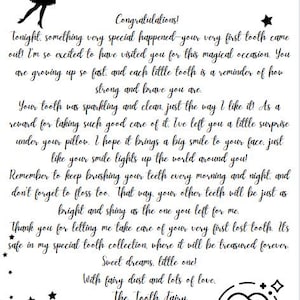 Congratulations!
Tonight, something very special happened—your very first tooth came
out! I'm so excited to have visited you for this magical occasion. You
are growing up so fast, and each little tooth is a reminder of how
strong and brave you are.
Your tooth was sparkling and clean, just the way I like it! As a
reward for taking such good care of it, I've left you a little surprise
under your pillow. I hope it brings a big smile to your face, just
like your smile lights up the world around you!
Remember to keep brushing your teeth every morning and night, and
don't forget to floss too. That way, your other teeth will be just as
bright and shiny as the one you left for me.
Thank you for letting me take care of your very first lost tooth. It's
safe in my special tooth collection, where it will be treasured forever.
Sweet dreams, little one!
With fairy dust and lots of love,
The Tooth Fairy